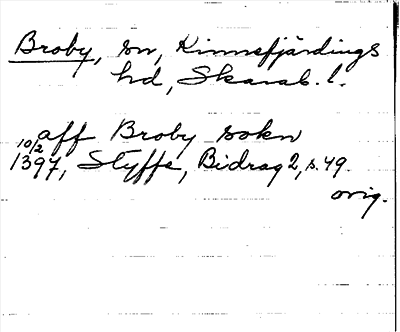 Broby, sn, Kinnefjärdings
hd, Skarab. l.
aff Broby sokn
10/2 1397, Styffe, Bidrag 2, s. 49.
orig.